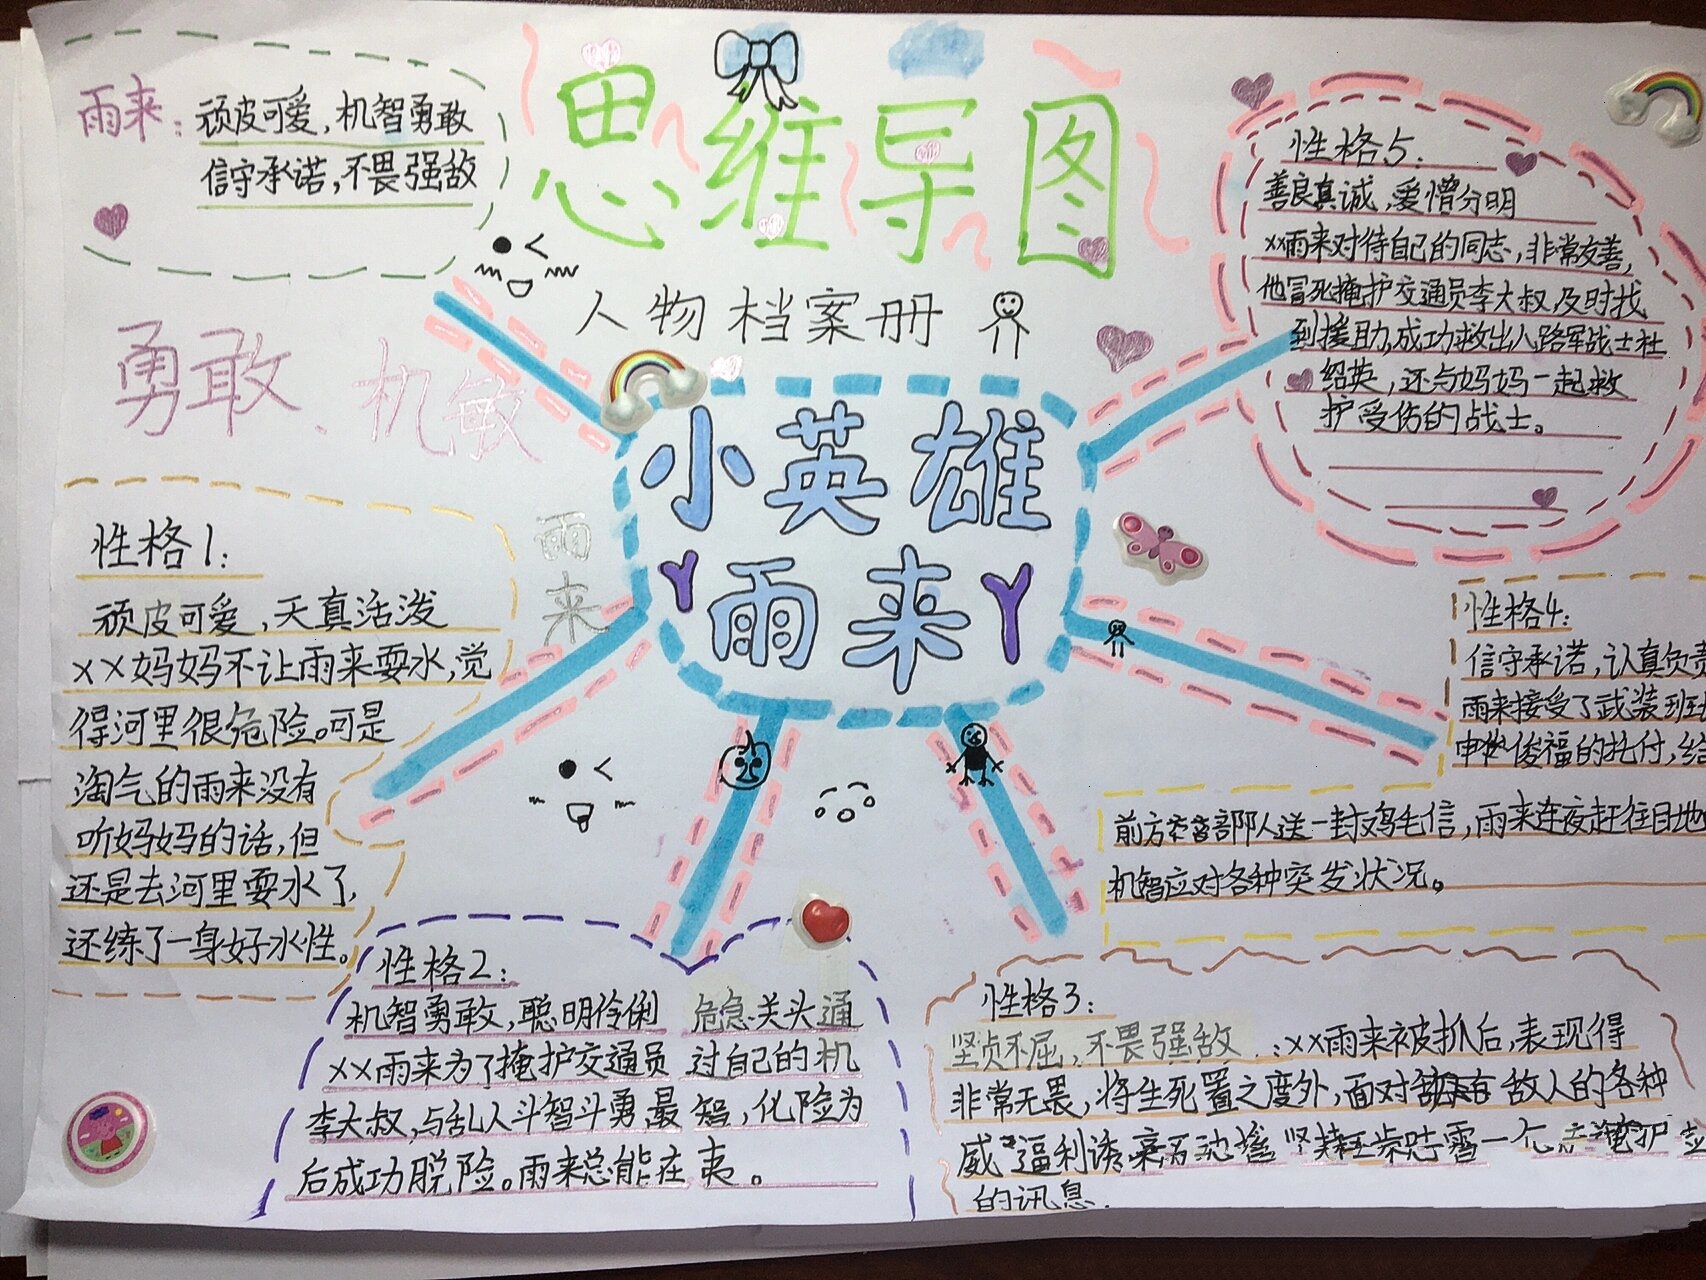 思维导图
人物档案册
雨来：顽皮可爱，机智勇敢
信守承诺，不畏强敌
勇敢、机敏
小英雄
雨来
雨来
性格1：
顽皮可爱，天真活泼
××妈妈不让雨来耍水，觉
得河里很危险。可是
淘气的雨来没有
听妈妈的话，但
还是去河里耍水了，
还练了一身好水性。
性格2：
机智勇敢，聪明伶俐
××雨来为了掩护交通员
李大叔，与乱人斗智斗勇，最
后成功脱险。雨来总能在
危急关头通
过自己的机
智，化险为
夷。
性格3：
坚贞不屈，不畏强敌.：××雨来被抓后，表现得
非常无畏，将生死置之度外，面对敌人的各种
威逼利诱
的讯息.
性格4：
信守承诺，认真负责
雨来接受了武装班
申俊福的托付，给
前方部队人送一封鸡毛信，雨来连夜赶往目地
机智应对各种突发状况。
性格5.
善良真诚，爱憎分明
××雨来对待自己的同志，非常友善，
他冒死掩护交通员李大叔，及时找
到援助，成功救出八路军战士杜
绍英，还与妈妈一起救
护受伤的战士。